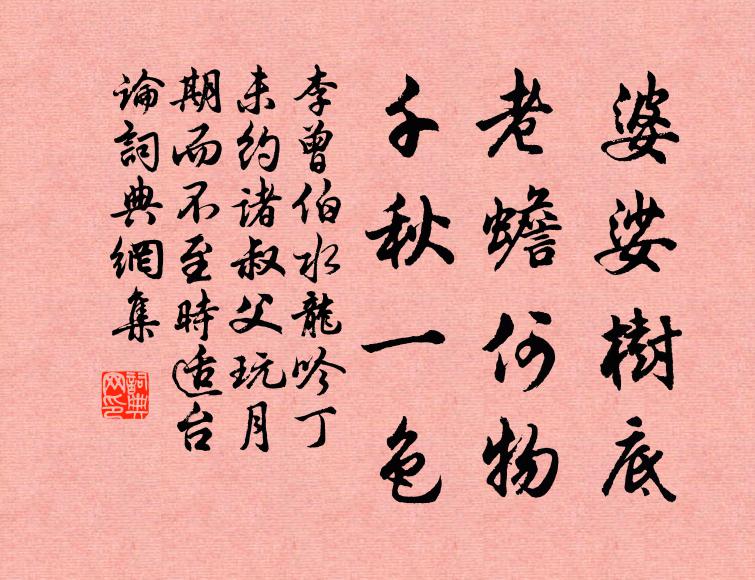 婆娑樹底
老蟾何物
千秋一色
李曾伯水龍吟丁
未約諸叔父玩月
期而不至時適台
論詞典網集
詞典網印